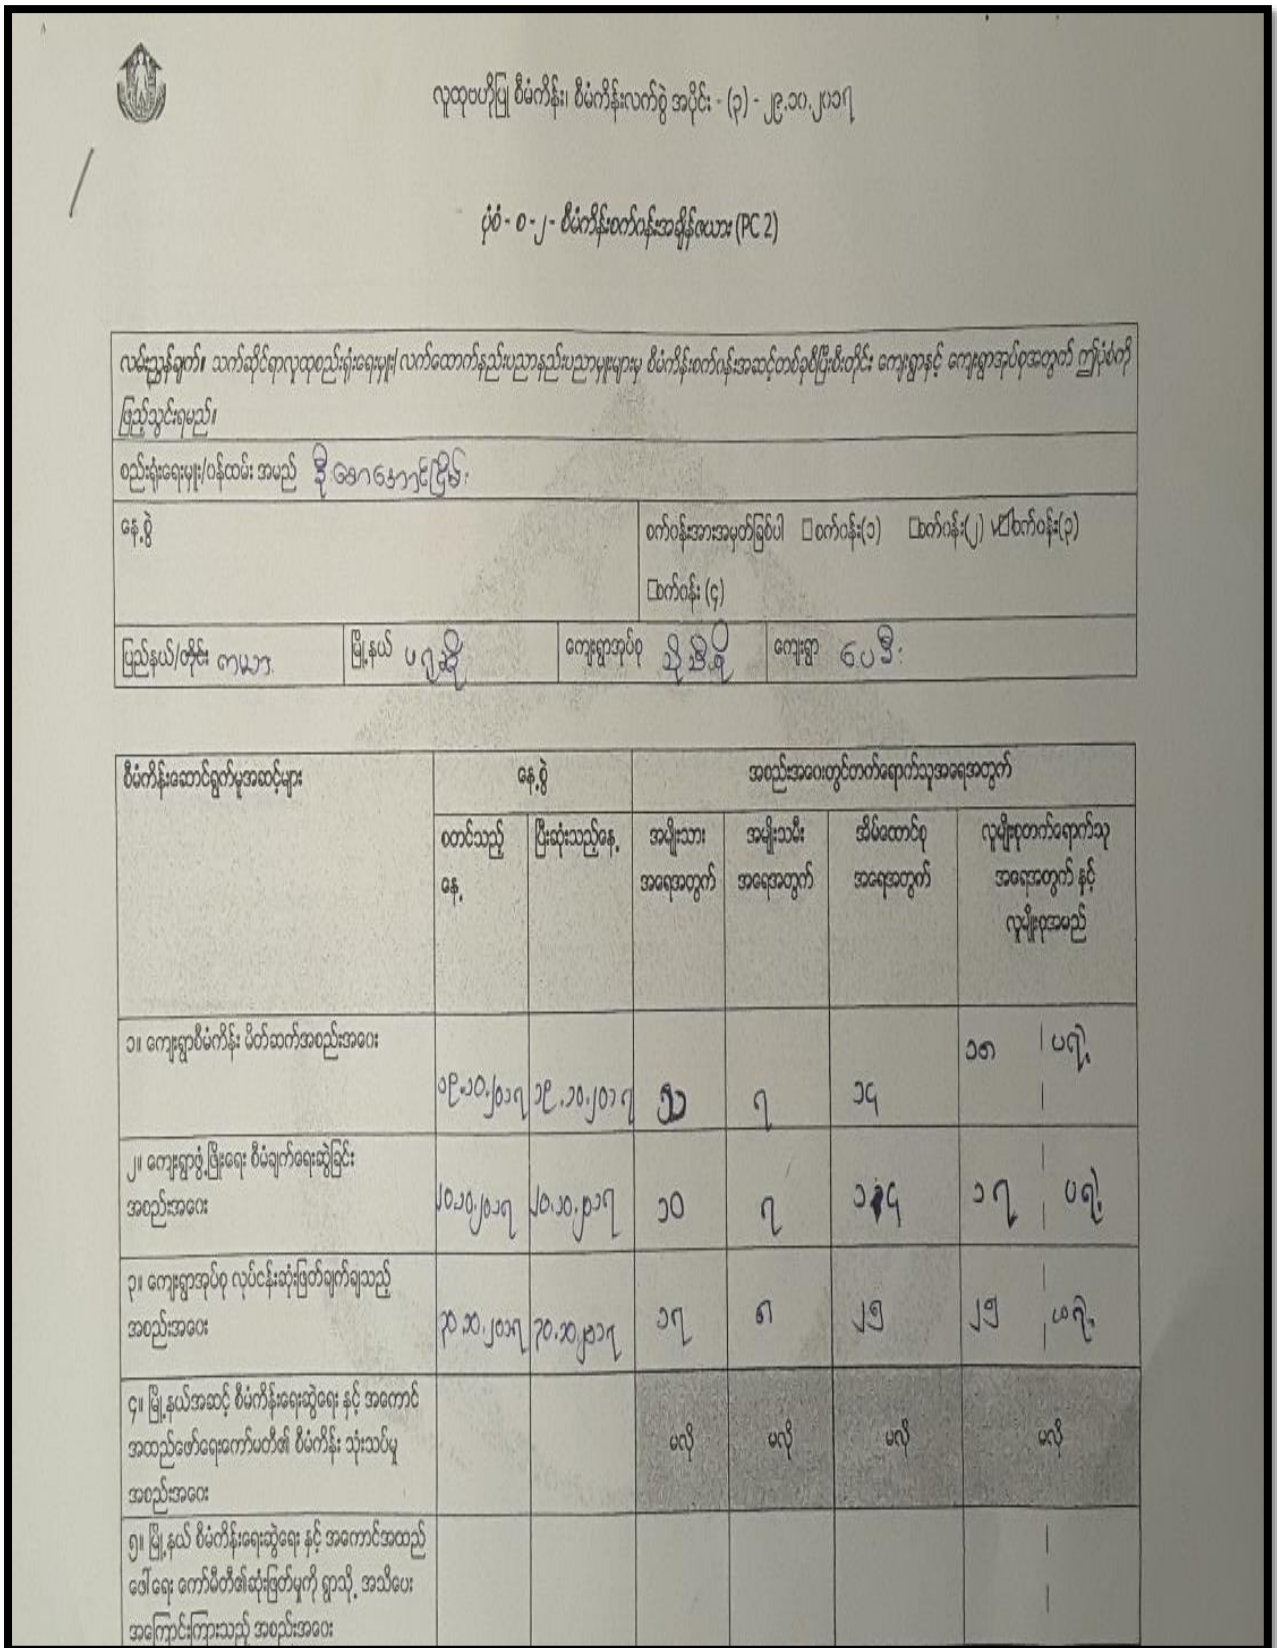 လူထုဗဟိုပြု စီမံကိန်း၊ စီမံကိန်းလက်စွဲ အပိုင်း - (၃) - ၂၉.၁၀.၂၀၁၇
ပုံစံ - စ -၂ - စီမံကိန်းစက်ဝန်းအချိန်ဇယား (PC 2)
လမ်းညွှန်ချက်။ သက်ဆိုင်ရာလူထုစည်းရုံးရေးမှူး/ လက်ထောက်နည်းပညာနည်းပညာမှူးများမှ စီမံကိန်းစက်ဝန်းအဆင့်တစ်ခုစီပြီးစီးတိုင်း ကျေးရွာနှင့် ကျေးရွာအုပ်စုအတွက် ဤပုံစံကို
ဖြည့်သွင်းရမည်။
စည်းရုံးရေးမှူး/ဝန်ထမ်း အမည်
နေ့စွဲ စက်ဝန်းအားအမှတ်ခြစ်ပါ □စက်ဝန်း(၁) □စက်ဝန်း(၂) ✓□စက်ဝန်း(၃)
□စက်ဝန်း (၄)
ပြည်နယ်/တိုင်း ကယား မြို့နယ် ဖရူဆို ကျေးရွာအုပ်စု ကျေးရွာ
စီမံကိန်းဆောင်ရွက်မှုအဆင့်များ နေ့စွဲ အစည်းအဝေးတွင်တက်ရောက်သူအရေအတွက်
စတင်သည့် ပြီးဆုံးသည့်နေ့ အမျိုးသား အမျိုးသမီး အိမ်ထောင်စု လူမျိုးစုတက်ရောက်သူ
နေ့ အရေအတွက် အရေအတွက် အရေအတွက် အရေအတွက် နှင့်
လူမျိုးစုအမည်
၁။ ကျေးရွာစီမံကိန်း မိတ်ဆက်အစည်းအဝေး
၁၉.၁၀.၂၀၁၇ ၁၉.၁၀.၂၀၁၇ ၇ ၁၄
၂။ ကျေးရွာဖွံ့ဖြိုးရေး စီမံချက်ရေးဆွဲခြင်း
အစည်းအဝေး ၂၀.၁၀.၂၀၁၇ ၂၀.၁၀.၂၀၁၇ ၁၀ ၇ ၁၄ ၁၇
၃။ ကျေးရွာအုပ်စု လုပ်ငန်းဆုံးဖြတ်ချက်ချသည့်
အစည်းအဝေး ၃၀.၁၀.၂၀၁၇ ၃၀.၁၀.၂၀၁၇ ၁၇ ၈ ၂၅ ၂၅
၄။ မြို့နယ်အဆင့် စီမံကိန်းရေးဆွဲရေး နှင့် အကောင်
အထည်ဖော်ရေးကော်မတီ၏ စီမံကိန်း သုံးသပ်မှု မလို မလို မလို မလို
အစည်းအဝေး
၅။ မြို့နယ် စီမံကိန်းရေးဆွဲရေး နှင့် အကောင်အထည်
ဖေါ်ရေး ကော်မီတီ၏ဆုံးဖြတ်မှုကို ရွာသို့ အသိပေး
အကြောင်းကြားသည့် အစည်းအဝေး